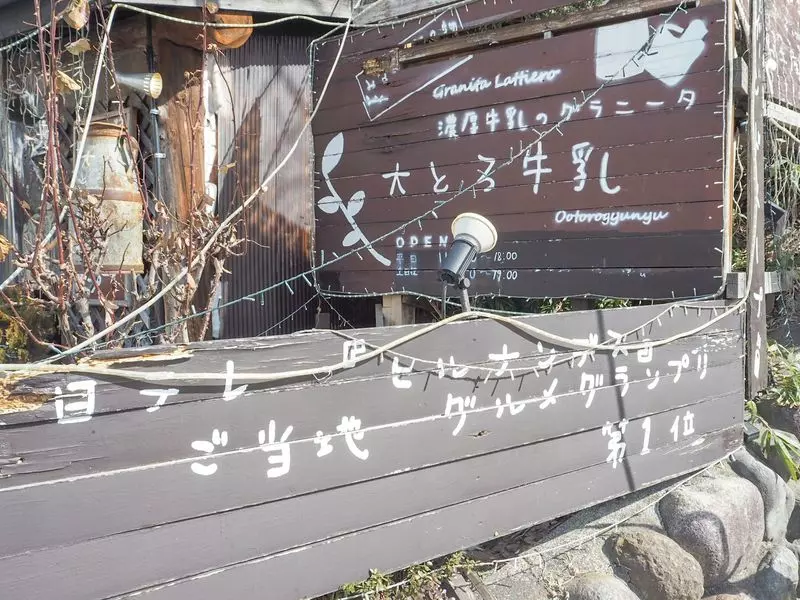 Granita Lattiero
濃厚牛乳のグラニータ
大とろ牛乳
Ootorogyunyu
OPEN
平日 18:00
19:00
日テレ ヒルナンデス
ご当地 グルメグランプリ
第1位